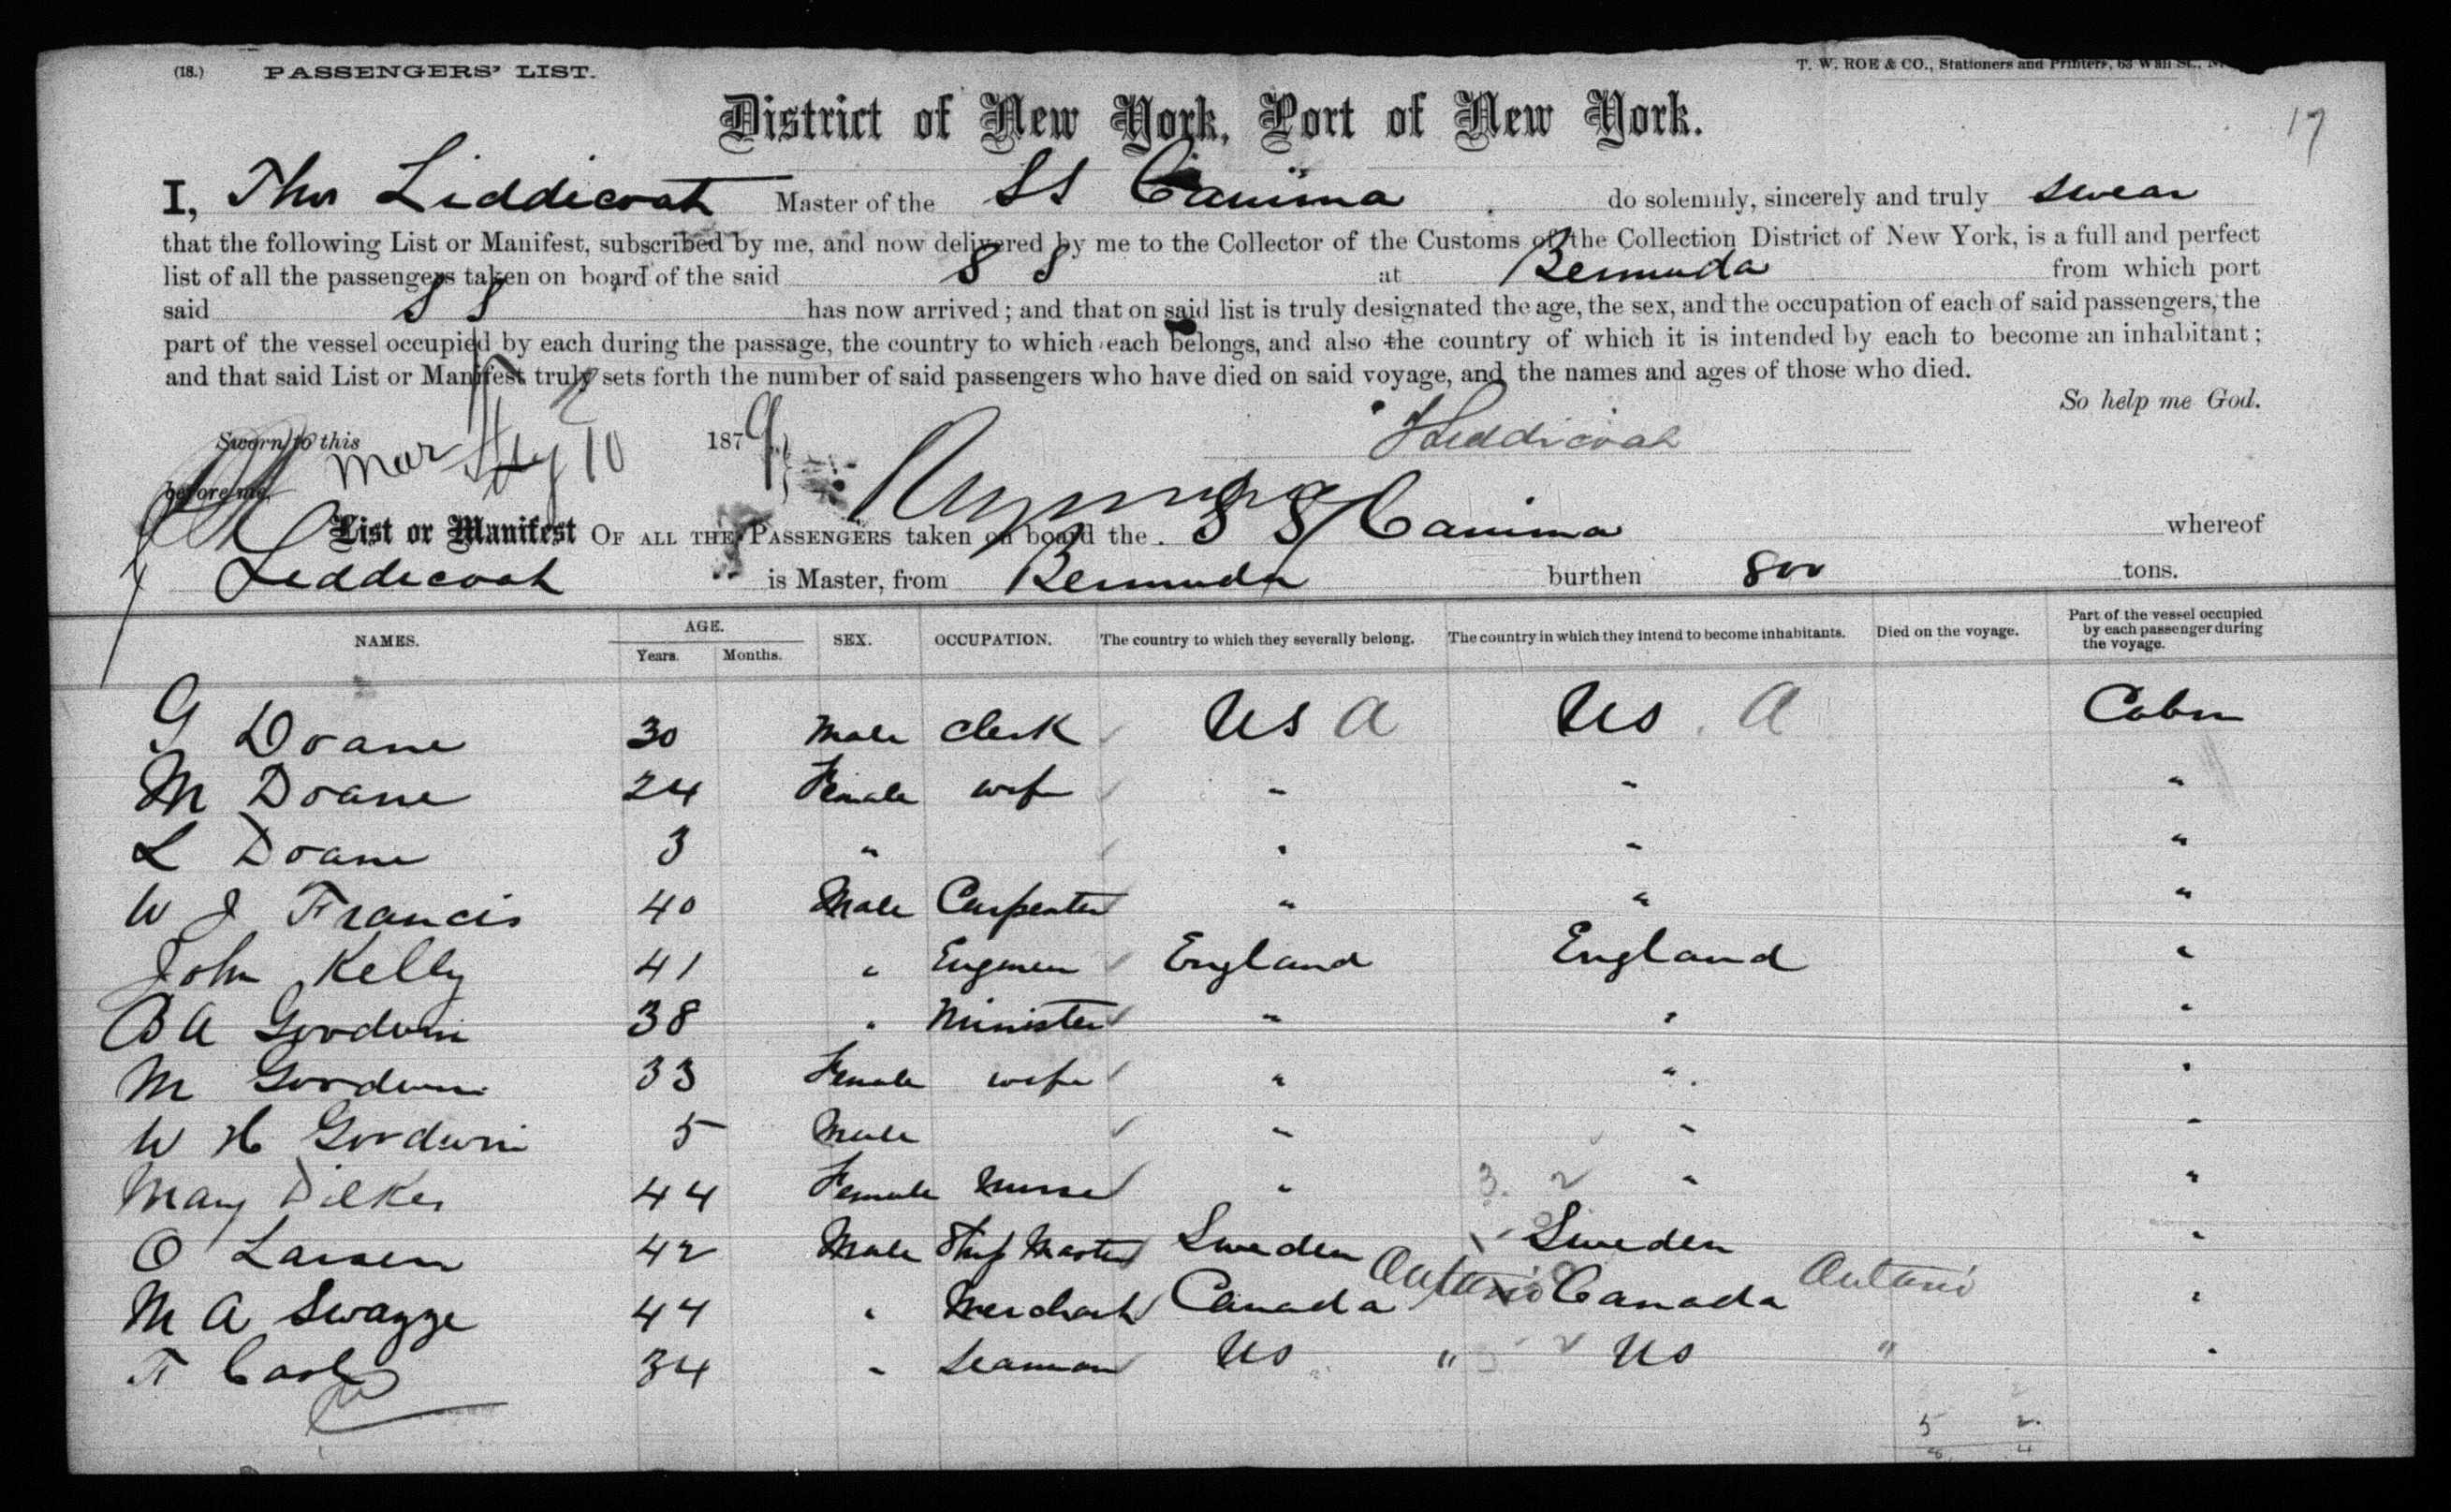 (18.) PASSENGERS' LIST. T. W. ROE & CO., Stationers and Printers, 63 Wall St., N.
17
District of New York, Port of New York.
I, Thos Liddicoat Master of the SS Canima do solemnly, sincerely and truly swear
that the following List or Manifest, subscribed by me, and now delivered by me to the Collector of the Customs of the Collection District of New York, is a full and perfect
list of all the passengers taken on board of the said SS at Bermuda from which port
said SS has now arrived; and that on said list is truly designated the age, the sex, and the occupation of each of said passengers, the
part of the vessel occupied by each during the passage, the country to which each belongs, and also the country of which it is intended by each to become an inhabitant;
and that said List or Manifest truly sets forth the number of said passengers who have died on said voyage, and the names and ages of those who died.
So help me God.
Sworn to this Mar 10 1879 Liddicoat
before me,
List or Manifest OF ALL THE PASSENGERS taken on board the SS Canima whereof
Liddicoat is Master, from Bermuda burthen 800 tons.
NAMES. AGE. Years. Months. SEX. OCCUPATION. The country to which they severally belong. The country in which they intend to become inhabitants. Died on the voyage. Part of the vessel occupied by each passenger during the voyage.
G Doane 30 Male Clerk US A US A Cabin
M Doane 24 Female wife " " "
L Doane 3 " " " "
W J Francis 40 Male Carpenter " " "
John Kelly 41 " England England "
B A Goodwin 38 " Minister " " "
M Goodwin 33 Female wife " " "
W H Goodwin 5 Male " " "
Mary Dilkes 44 Female Nurse " " "
O Larsen 42 Male Ship Master Sweden Sweden "
M A Swazze 44 " Merchant Canada Ontario Canada Ontario "
F 34 " Seaman US " US " "
5 2
8 4